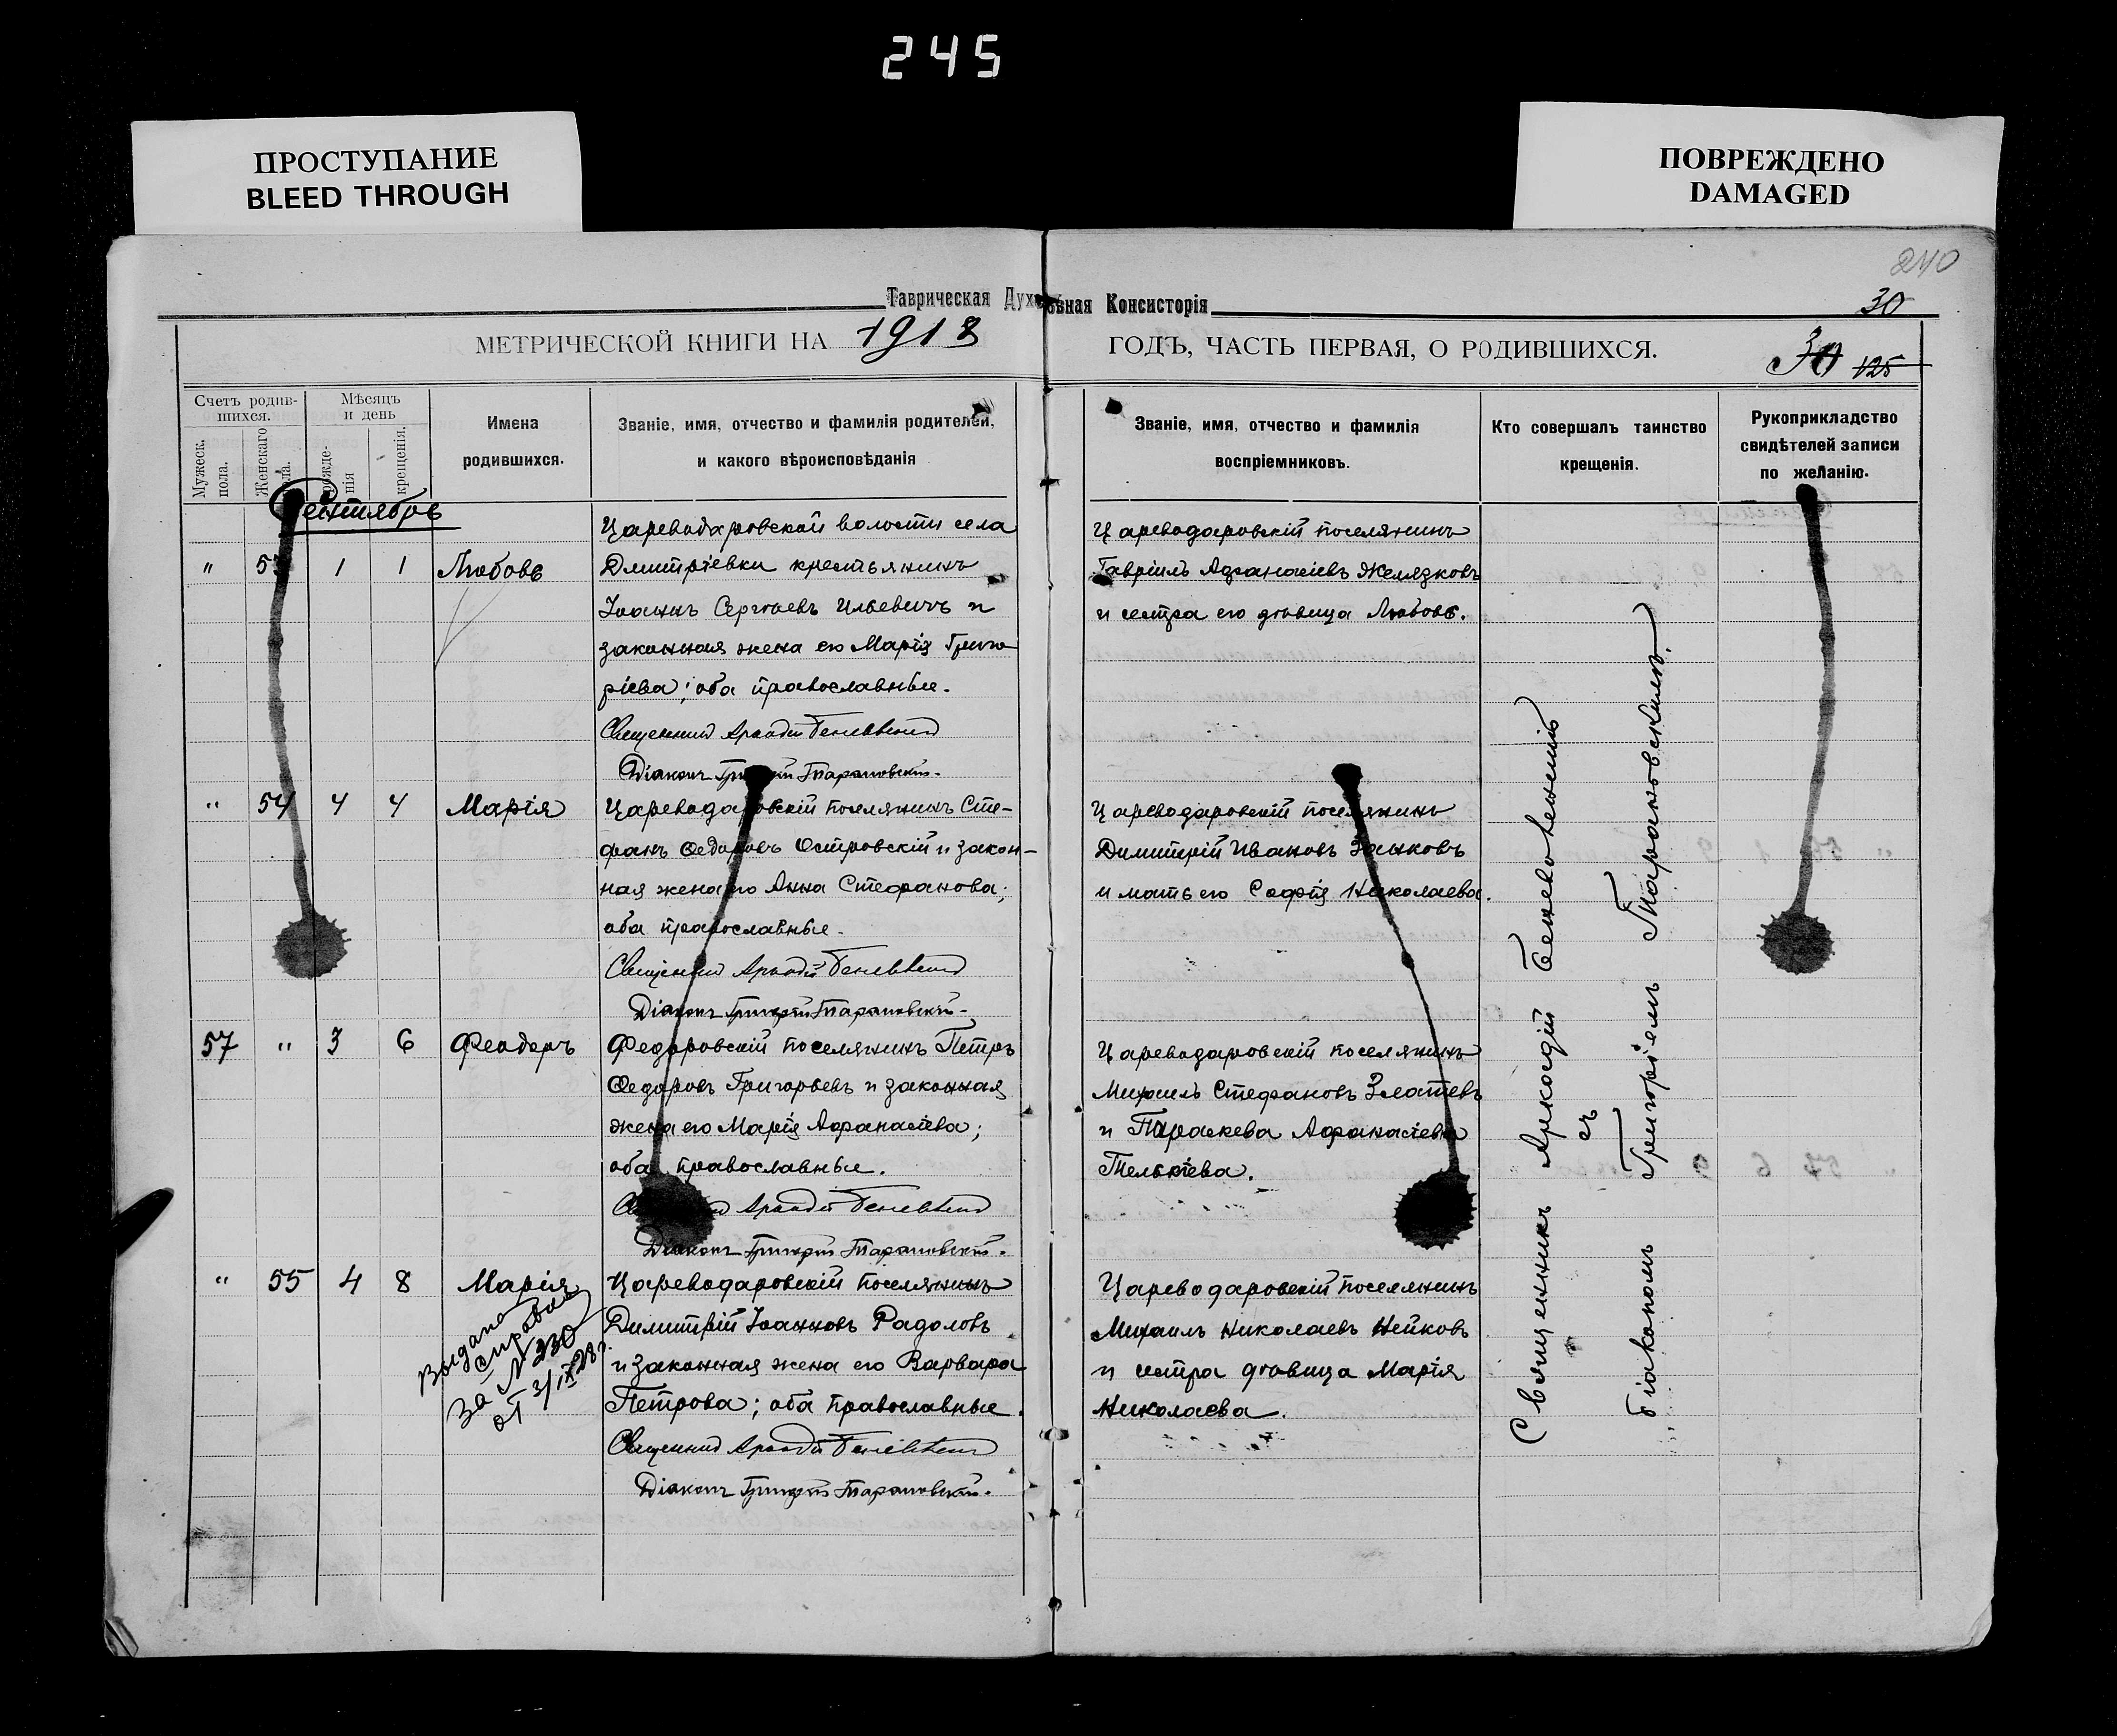 245
ПРОСТУПАНИЕ
BLEED THROUGH
ПОВРЕЖДЕНО
DAMAGED
240
Таврическая Духовная Консисторія
30
МЕТРИЧЕСКОЙ КНИГИ НА 1918 ГОДЪ, ЧАСТЬ ПЕРВАЯ, О РОДИВШИХСЯ.
30 125
Счетъ родив-
шихся.
Мужеск.
пола.
Женскаго
пола.
Мѣсяцъ
и день
рожде-
нія
крещенія.
Имена
родившихся.
Званіе, имя, отчество и фамилія родителей,
и какого вѣроисповѣданія
Званіе, имя, отчество и фамилія
воспріемниковъ.
Кто совершалъ таинство
крещенія.
Рукоприкладство
свидѣтелей записи
по желанію.
Сентябрь
" 53 1 1 Любовь
Цареводаровской волости села
Дмитріевки крестьянинъ
Іоаннъ Сергѣевъ Ильевичъ и
законная жена его Марія Григо
ріева; оба православные.
Священникъ Аркадій Беневленскій
Діаконъ Григорій Тарановскій.
Цареводаровскій поселянинъ
Гавріилъ Аѳанасіевъ Желязковъ
и сестра его дѣвица Любовь.
" 54 4 4 Марія
Цареводаровскій поселянинъ Сте-
фанъ Ѳедоровъ Островскій и закон-
ная жена его Анна Стефанова;
оба православные.
Священникъ Аркадій Беневленскій
Діаконъ Григорій Тарановскій.
Цареводаровскій поселянинъ
Димитрій Ивановъ Занковъ
и мать его Софія Николаева.
57 " 3 6 Феодоръ
Федоровскій поселянинъ Петръ
Ѳедоровъ Григорьевъ и законная
жена его Марія Аѳанасіева;
оба православные.
Священникъ Аркадій Беневленскій
Діаконъ Григорій Тарановскій.
Цареводаровскій поселянинъ
Михаилъ Стефановъ Златевъ
и Параскева Аѳанасіевна
Телькіева.
" 55 4 8 Марія
Выдана
справка
за № 230
от 3/IX 28 г.
Цареводаровскій поселянинъ
Димитрій Іоанновъ Радоловъ
и законная жена его Варвара
Петрова; оба православные.
Священникъ Аркадій Беневленскій
Діаконъ Григорій Тарановскій.
Цареводаровскій поселянинъ
Михаилъ Николаевъ Нейковъ
и сестра дѣвица Марія
Николаева.
Священникъ Аркадій Беневленскій
съ
Діакономъ Григоріемъ Тарановскимъ.